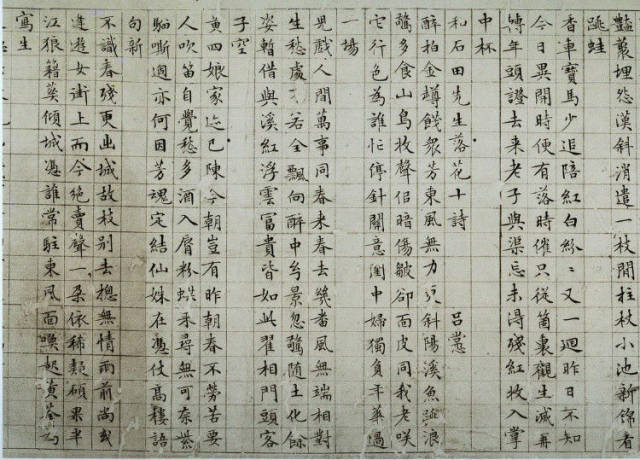 裏埋怨漢斜消遣一枝閒柱杖小池新飾看
跳蛙
香車寶馬少追陪紅白紛〻又一迴昨日不知
今日異開時便有落時催只從箇裏觀生滅再
轉年頭證去來老子與渠忘未得殘紅收入掌
中杯
和石田先生落花十詩 呂㦂
醉拍金樽餞衆芳東風無力斜陽溪魚避浪
驚多食山鳥收聲侶暗傷皺卻面皮同我老咲
它行色為誰忙停針閣意閨中婦獨負年華過
一場
兒戲人間萬事同春來春去幾番風無端相對
生愁處若全飄向醉中兮景忽驚隨土化餘
姿暫借與溪紅浮雲富貴皆如此翟相門頭客
子空
黄四娘家迹已陳今朝豈有昨朝春不勞苦要
人吹笛自覺愁多酒入脣粉蜨來尋無可奈紫
騮嘶過亦何因芳魂定結仙姝在憑仗高樓語
句新
不識春殘更出城故枝別去摠無情雨前尚或
逢遊女街上而今絕賣聲一朶依稀碩果半
江狼籍葬傾城憑誰常駐東風面喚起黃荃為
寫生